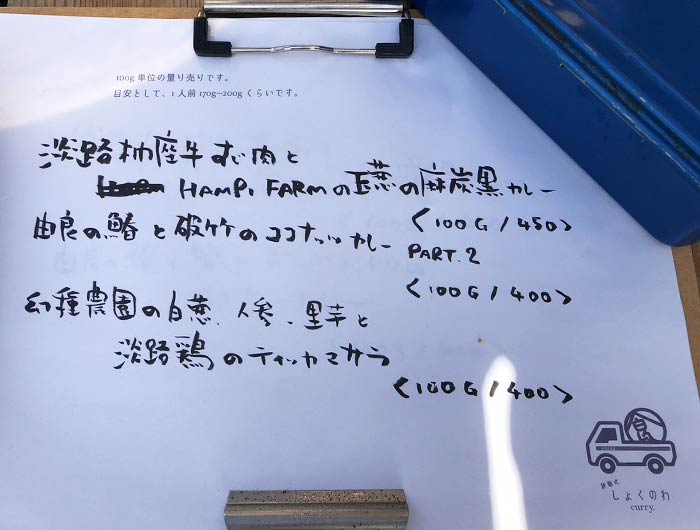 100g 単位の量り売りです。
目安として、1人前170g~200gくらいです。
淡路
牛すじ肉と
HAMPI FARMの玉葱の麻炭黒カレー
<100G/450>
由良の鰆と破竹のココナッツカレー
PART.2
<100G/400>
幻種農園の白葱、人参、里芋と
淡路鶏のティッカマサラ
<100G/400>
食
しょくのわ
curry.